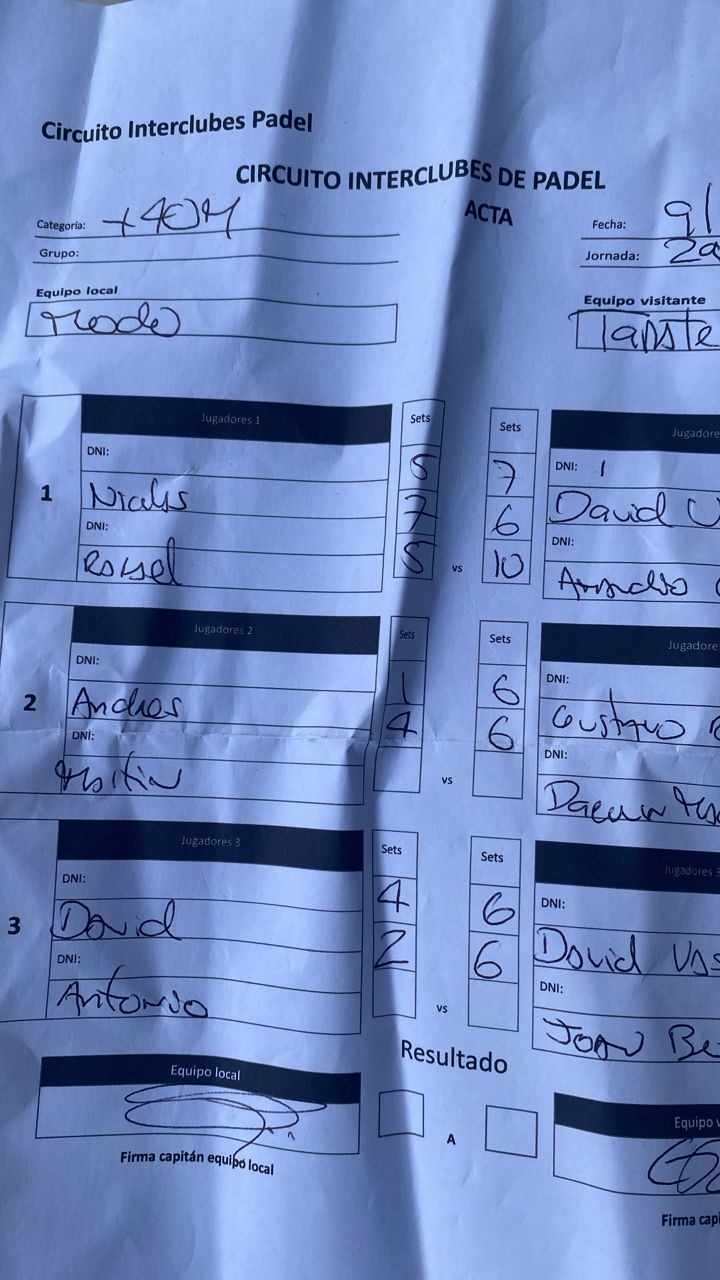 Circuito Interclubes Padel
CIRCUITO INTERCLUBES DE PADEL
ACTA
Categoría: +40M
Fecha: 9/
Grupo:
Jornada: 2a
Equipo local
Equipo visitante
Tapste
Jugadores 1 Sets Sets Jugadore
DNI: 7 DNI:
1 7 6 David
DNI: DNI:
Rosel 5 vs 10
Jugadores 2 Sets Sets Jugadore
DNI: 1 6 DNI:
2 Andres 4 6 Gustavo
DNI: DNI:
vs
Jugadores 3 Sets Sets Jugadores 3
DNI: 4 6 DNI:
3 David 2 6 David Vas
DNI: DNI:
Antonio vs Joan Be
Resultado
Equipo local Equipo v
A
Firma capitán equipo local Firma capi